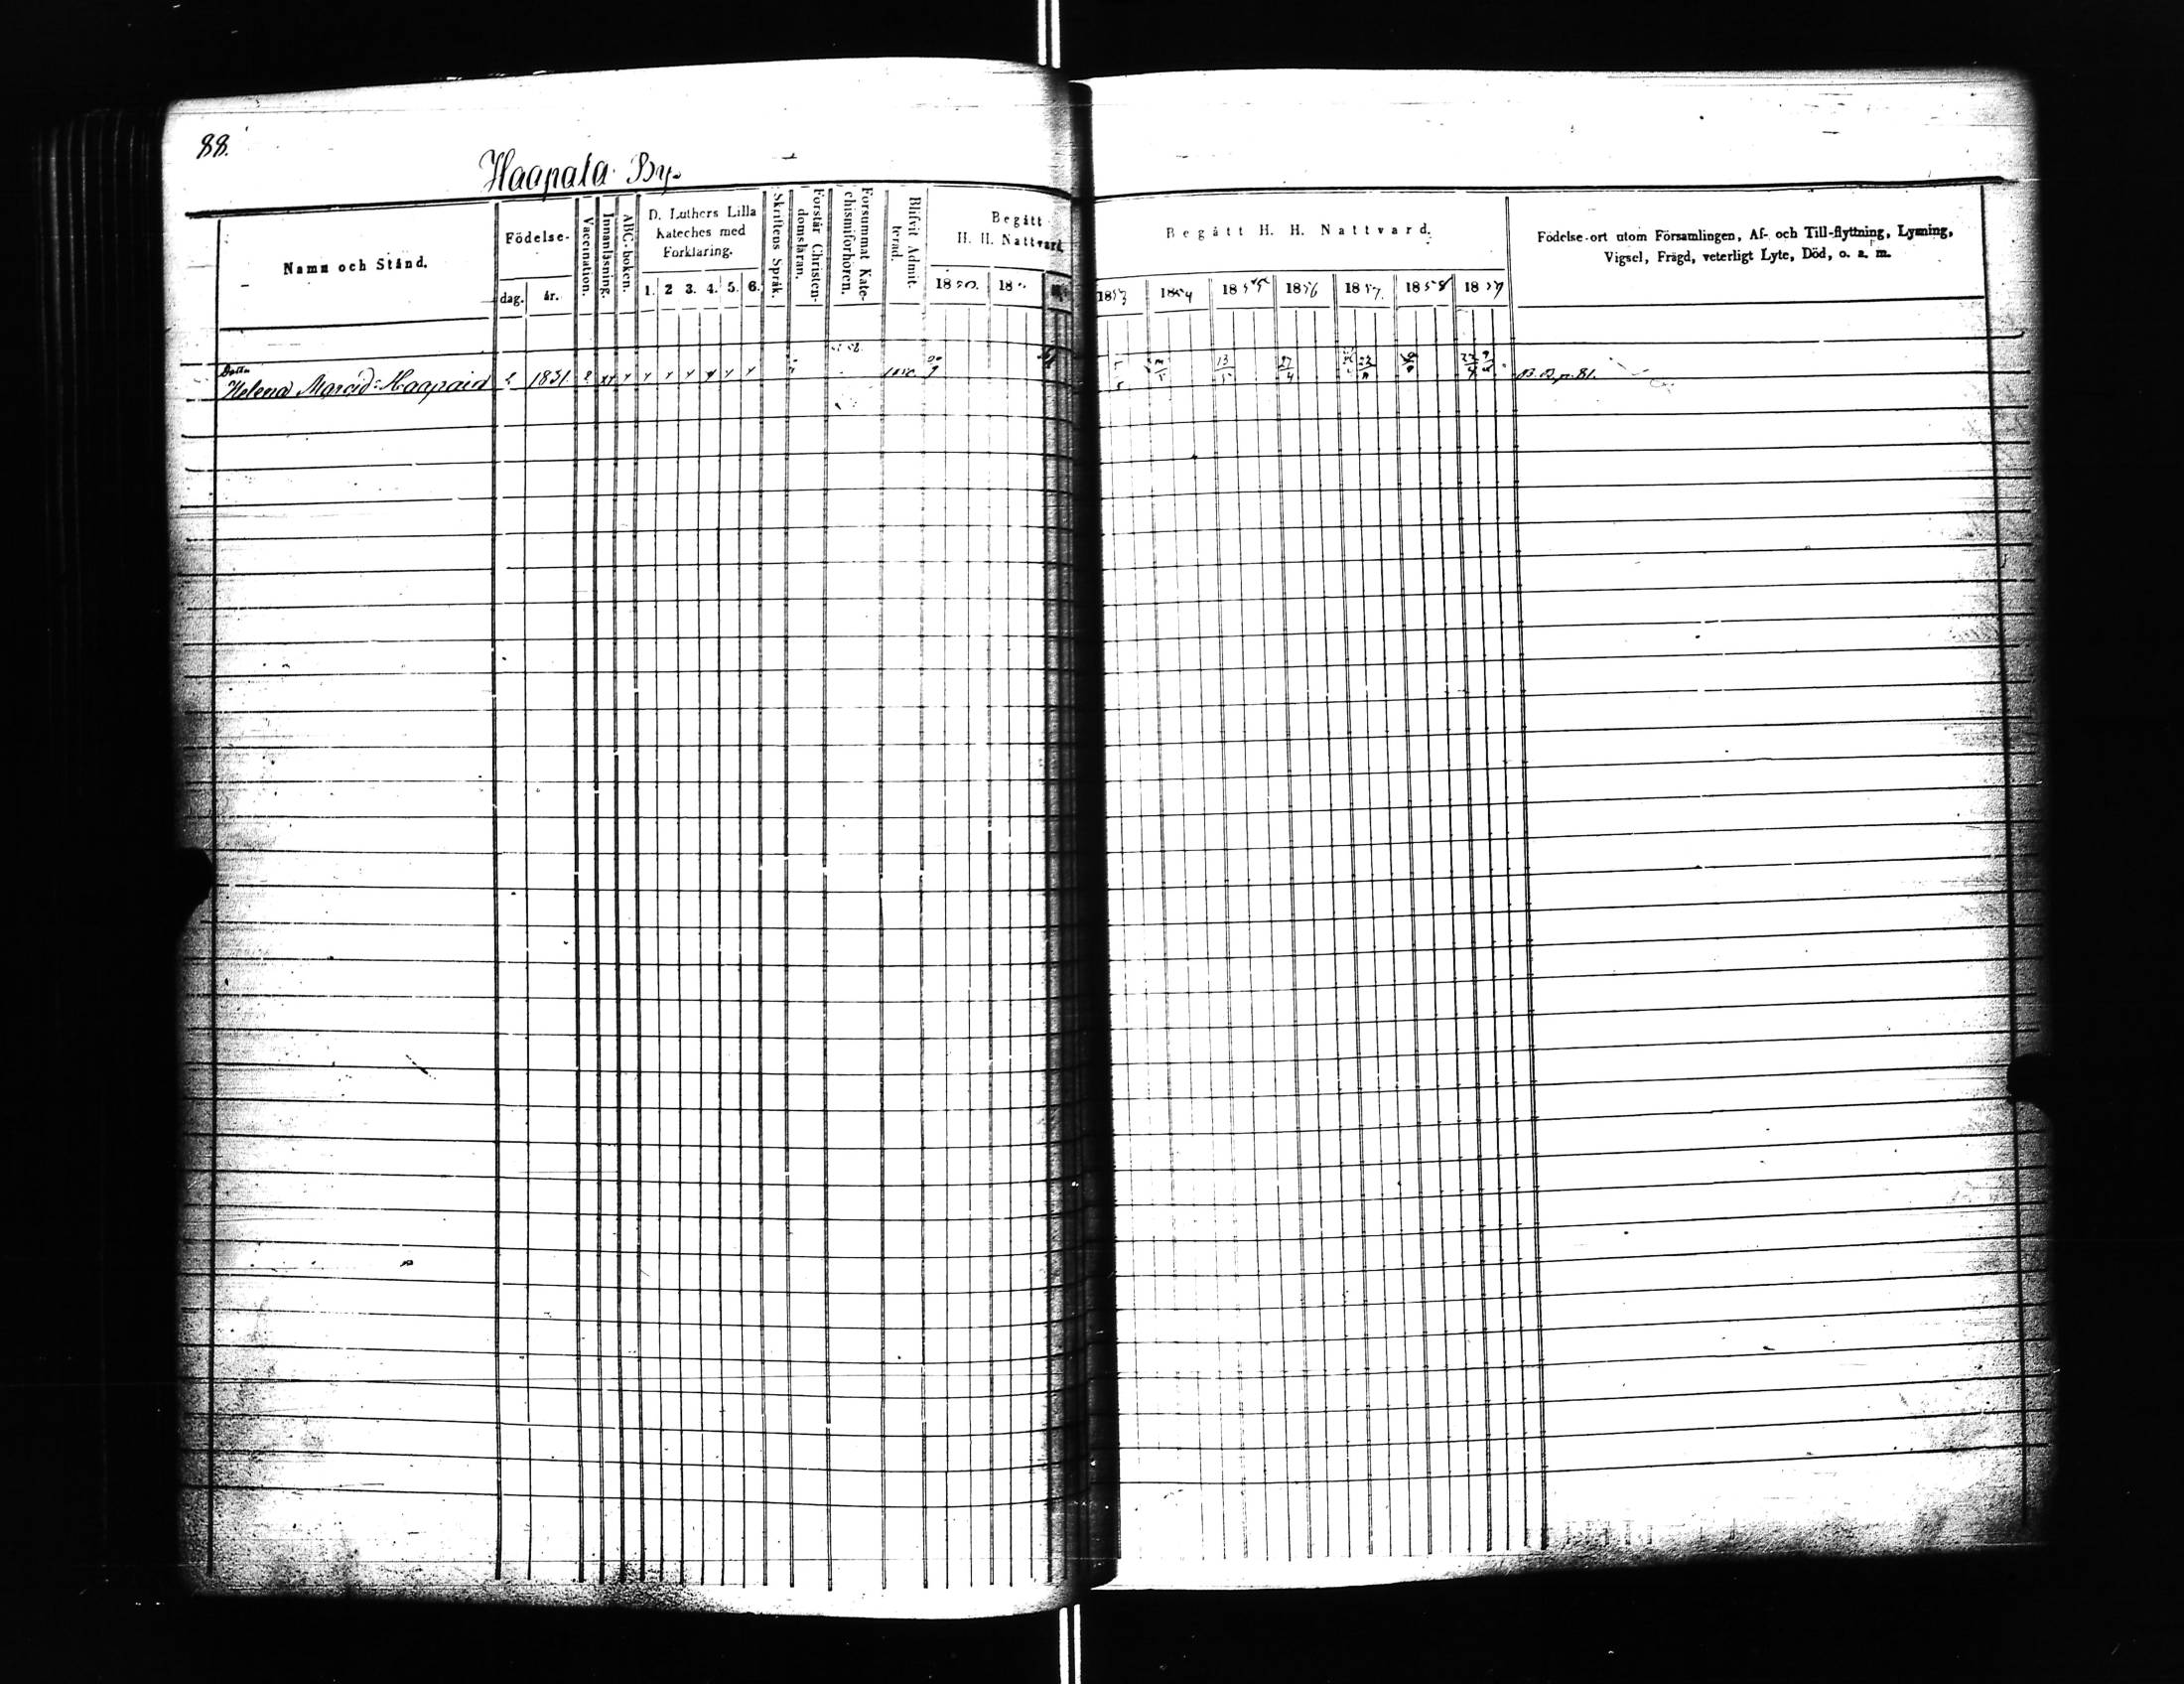 88.
Haapala By.
Namn och Stånd.
Födelse-
dag.
år.
Vaccination.
Innanläsning.
ABC-boken.
D. Luthers Lilla
Kateches med
Förklaring.
1. 2 3. 4. 5. 6.
Skriftens Språk.
Förstår Christen-
domsläran.
Försummat Kate-
chismiförhören.
Blifvit Admit-
terad.
Begått
H. H. Nattvard.
1850.
Begått H. H. Nattvard.
1853 1854 1855 1856 1857. 1858 1859
Födelse-ort utom Församlingen, Af- och Till-flyttning, Lysning,
Vigsel, Frägd, veterligt Lyte, Död, o. a. m.
Helena 1831.
B. B. p. 81.